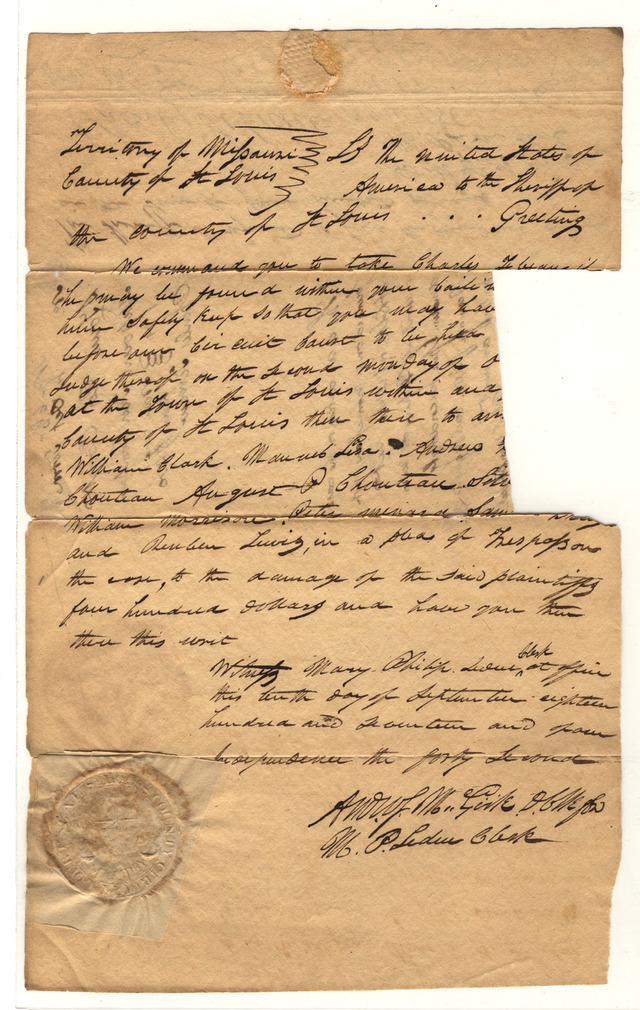 Territory of Missouri
County of St Louis
Sct The United States of
America to the Sheriff of
the county of St Louis . . . Greeting
We command you to take Charles
he may be found within your baili
him safely keep so that you may hav
before our Circuit Court to be
Judge thereof, on the second monday of O
at the Town of St Louis within and
County of St Louis then there to an
William Clark. Manuel Lisa. Andrew
Chouteau August P Chouteau
William Morrison. Peter menard
and Reuben Lewis, in a plea of Trespass on
the case, to the damage of the said plaintiffs
four hundred dollars and have you then
there this writ
Witness Mary Philip Leduc Clerk at office
this tenth day of September eighteen
hundred and seventeen and of our
Independence the forty second
M. P. Leduc Clerk